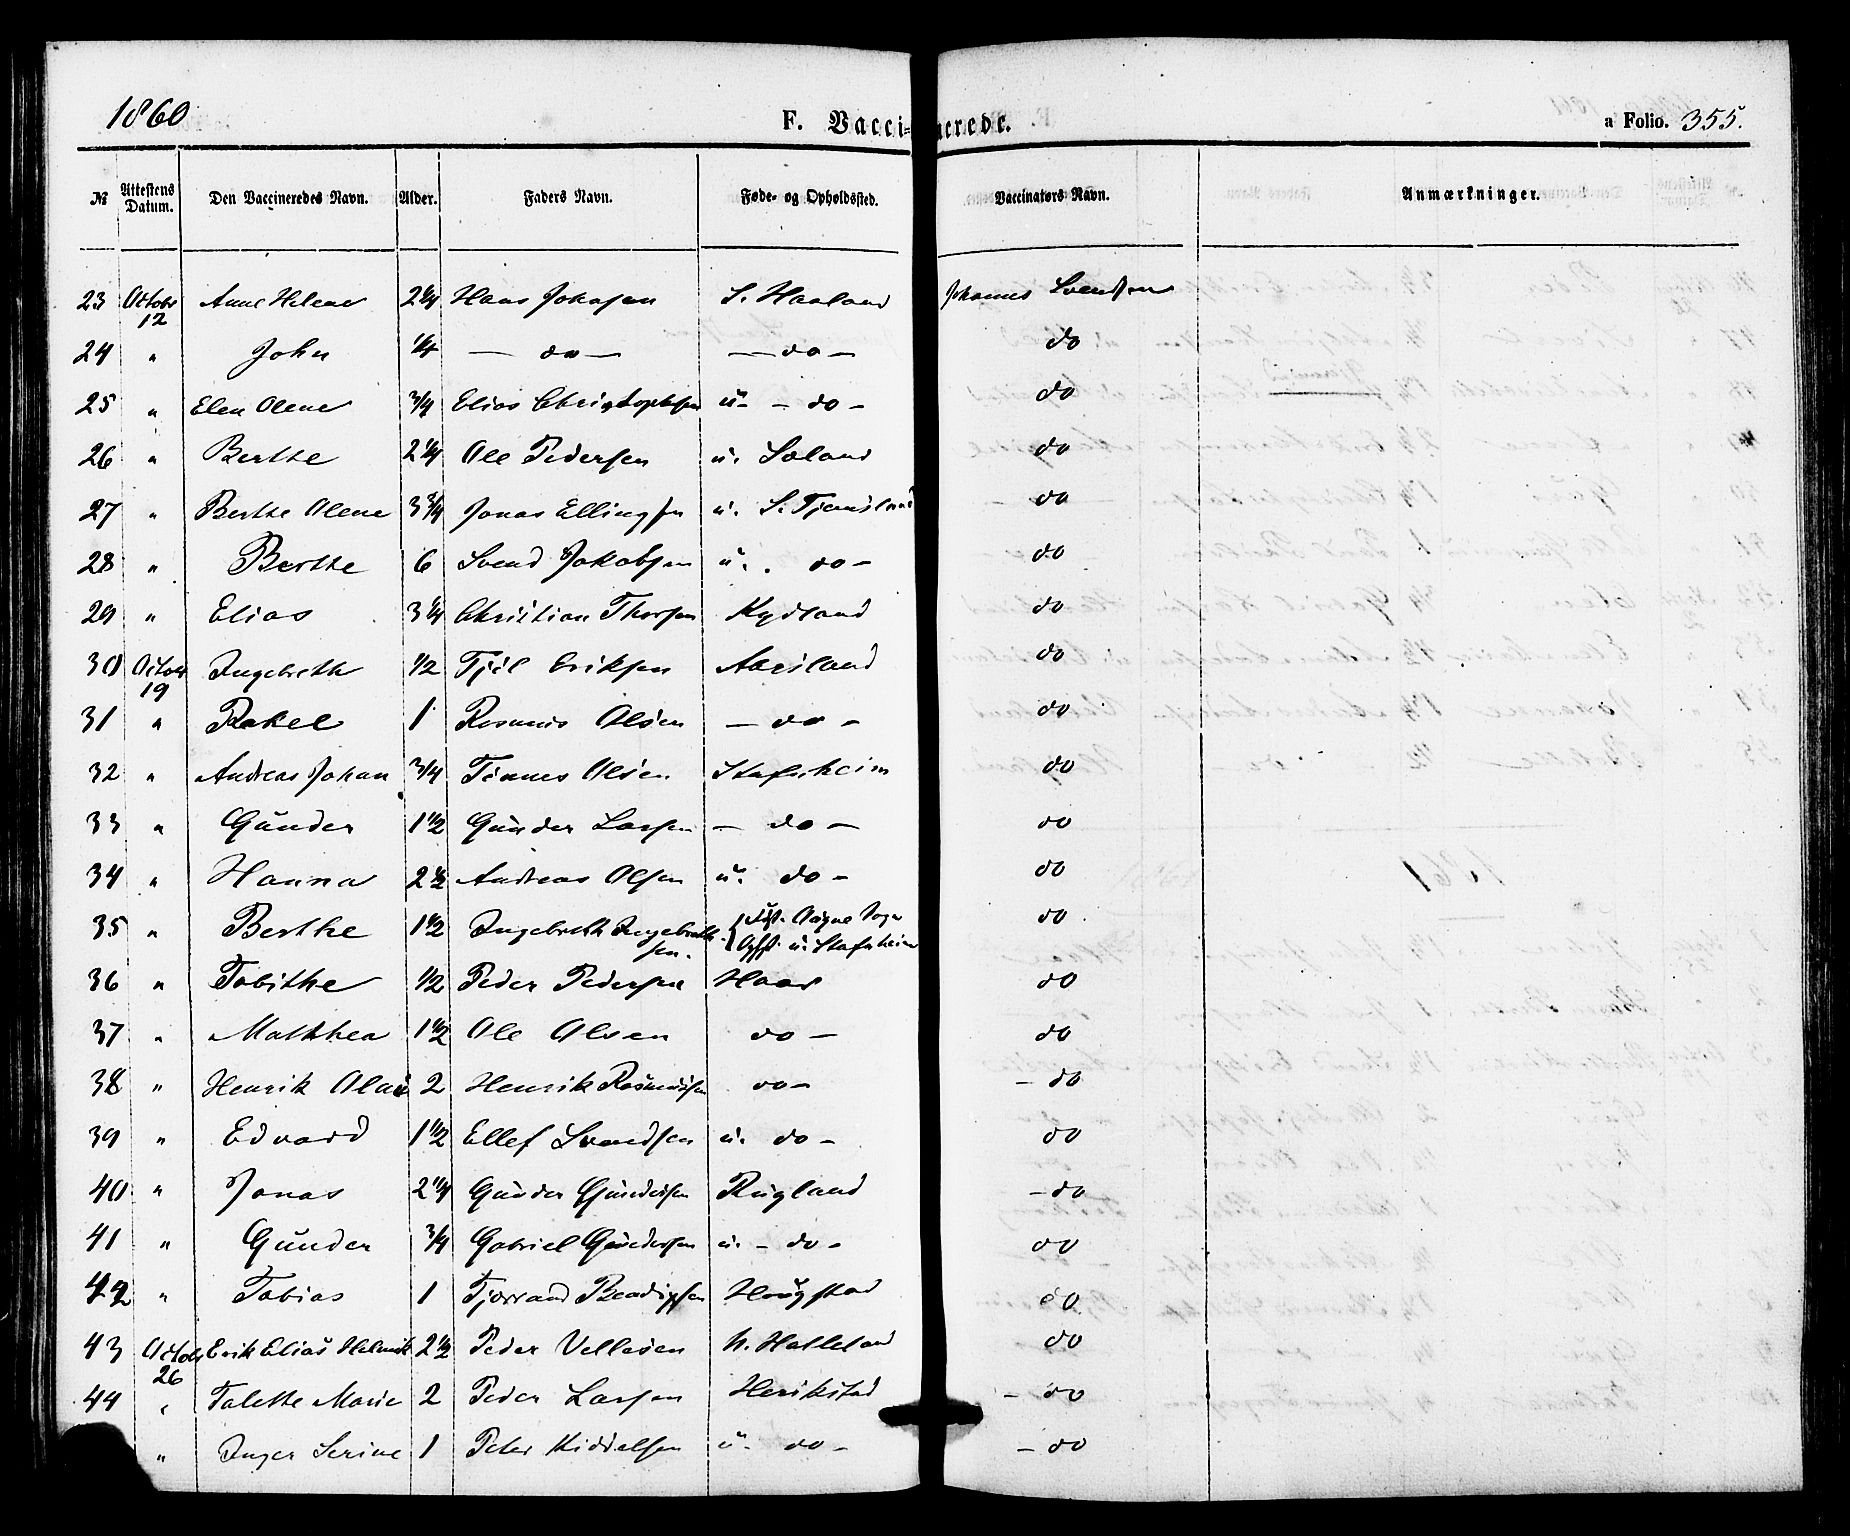 1860 F. Vaccinerede. a Folio. 355.
№ Attestens Datum. Den Vaccineredes Navn. Alder. Faders Navn. Føde- og Opholdssted. Vaccinators Navn. Anmærkninger.
23 Octobr 12 Anne Helene 2 1/4 Hans Johnsen S. Haaland Johannes Svendsen
24 " John 1/4 — do — — do — do
25 " Elen Olene 3/4 Elias Christophersen u. - do - do
26 " Berthe 2 1/4 Ole Pedersen u. Søland do
27 " Berthe Olene 3 3/4 Jonas Ellingsen u. S. Tjemsland do
28 " Berthe 6 Svend Jakobsen u. . do - do
29 " Elias 3 1/4 Christian Thorsen Kydland do
30 Octobr 19 Ingebreth 1/2 Tjøl Eriksen Aarsland do
31 " Rakel 1 Rasmus Olsen — do - do
32 " Andreas Johan 3/4 Tønnes Olsen Stafnheim do
33 " Gunder 1 1/2 Gunder Larsen — do — do
34 " Hanna 2 1/2 Andreas Olsen u. do - do
35 " Berthe 1 1/2 Ingebreth Ingebreth-
sen. Fdst. Oogne Sogn
Opst. u. Stafnheim do
36 " Tobithe 1/2 Peder Pedersen Haar do
37 " Matthea 1 1/2 Ole Olsen do — do
38 " Henrik Olai 2 Henrik Rasmussen do - - do
39 " Edvard 1 1/2 Ellef Svendsen u. do - do
40 " Jonas 2 1/4 Gunder Gundersen Rugland - do
41 " Gunder 3/4 Gabriel Gundersen u. - do - do
42 " Tobias 1 Tjørrand Bendixsen Haugstad do
43 Octobr 26 Erik Elias Helmik 2 1/2 Peder Vellesen N. Hatleland do
44 " Talette Marie 2 Peder Larsen Herikstad - do
" Inger Serine 1 Peter Kiddelsen u. do - - do